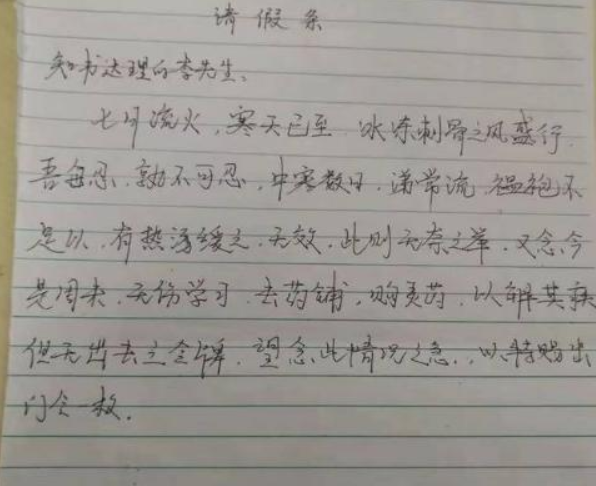 请假条
知书达理的李先生、
七月流火，寒天已至 冰冻刺骨之风盛行.
吾每忍，孰不可忍，中寒数日，涕常流，褞袍不
足以，有热汤缓之，无效，此则无奈之举，又念今
是周末，无伤学习，去药铺，购灵药，以解其疾
但无出去之金牌，望念此情况之急，以特赐出
门令一枚.